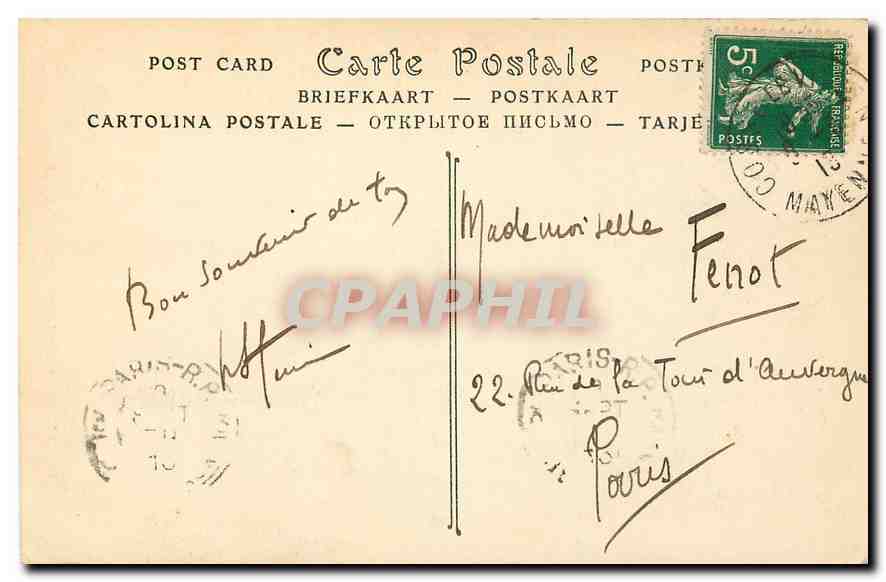 POST CARD Carte Postale POSTK
BRIEFKAART — POSTKAART
CARTOLINA POSTALE — ОТКРЫТОЕ ПИСЬМО — TARJE
5c
REPUBLIQUE FRANÇAISE
POSTES
CO MAYENNE
Bon Souvenir de
PARIS-R.P
Mademoiselle
Fenot
22. Rue de la Tour d'Auvergne
Paris
PARIS-R.P
CPAPHIL